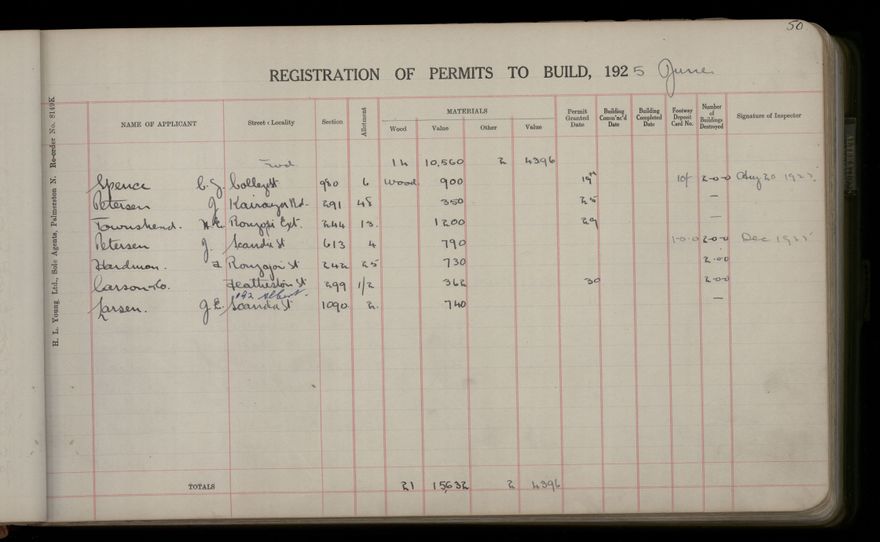 50
REGISTRATION OF PERMITS TO BUILD, 1925 June
NAME OF APPLICANT Street & Locality Section Allotment MATERIALS Wood Value Other Value Permit Granted Date Building Comm'nc'd Date Building Completed Date Footway Deposit Card No. Number of Buildings Destroyed Signature of Inspector
Fwd 14 10,560 2 4396
Spence C.J. College St 980 6 Wood 900 19th 10/- 2-0-0 Aug 20 1925
Petersen J Kairanga Rd. 291 45 350 25 —
Townshend. Ext. 244 13 1200 29 —
Petersen J. Scandia St 613 4 790 1-0-0 2-0-0 Dec 1925
Hardman. St 242 25 730 2-0-0
Carson & Co. Featherston St 299 1/2 362 30 2-0-0
192 Albert
Larsen. J.E. Scandia St 1090 2 740 —
TOTALS 21 15,632 2 4396
H. L. Young Ltd., Sole Agents, Palmerston N. Re-order No. 8149K